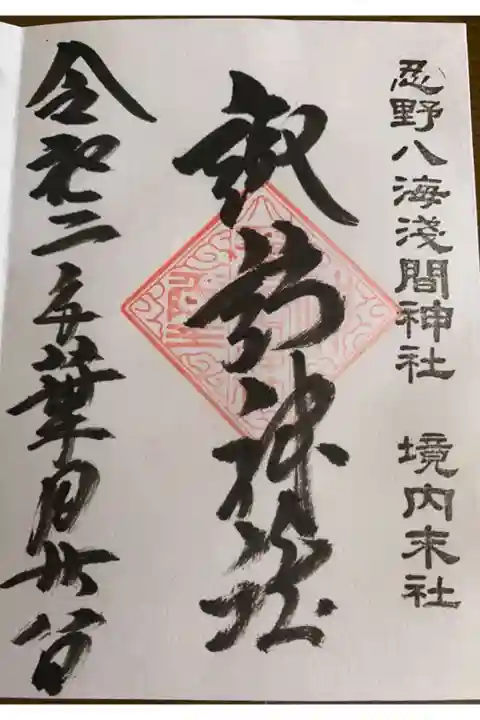 忍野八海淺間神社　境内末社
諏訪神社
令和二年葉月廿八日